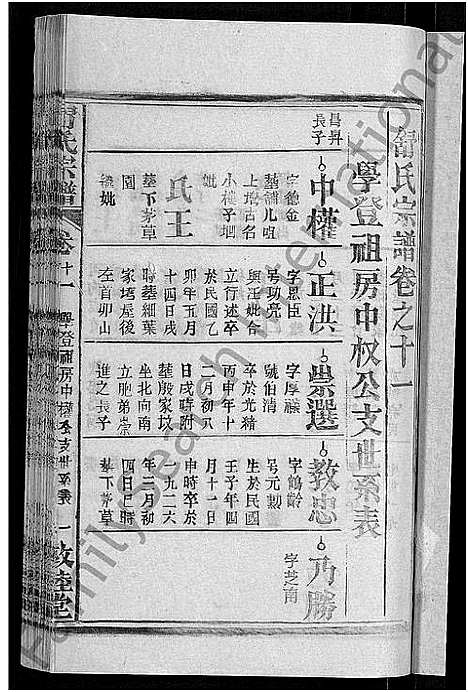 氏宗譜卷之十一
學登祖房中权公支世系表
昌昇
長子
中權
字德金
墓舖儿咀
上塆古名
小樓子垇
妣
氏王
墓下茅草
園
正洪
字思臣
号功亮
與汪妣合
立行述卒
於民國乙
卯年五月
十四日戌
時葬細葉
家塆屋後
左首卯山
崇選
字厚
號伯清
卒於光緒
丙申年十
二月初八
日戌時附
葬殷家坟
坐北向南
立胞弟崇
進之長子
教忠
字鶴齡
号元勲
生於民國
壬子年四
月十一日
申時卒於
一九二六
年三月初
四日巳時
墓下茅草
乃勝
字芝南
氏宗譜
卷十一
學登祖房中權公支世系表
一
敦睦堂
Familysearch International